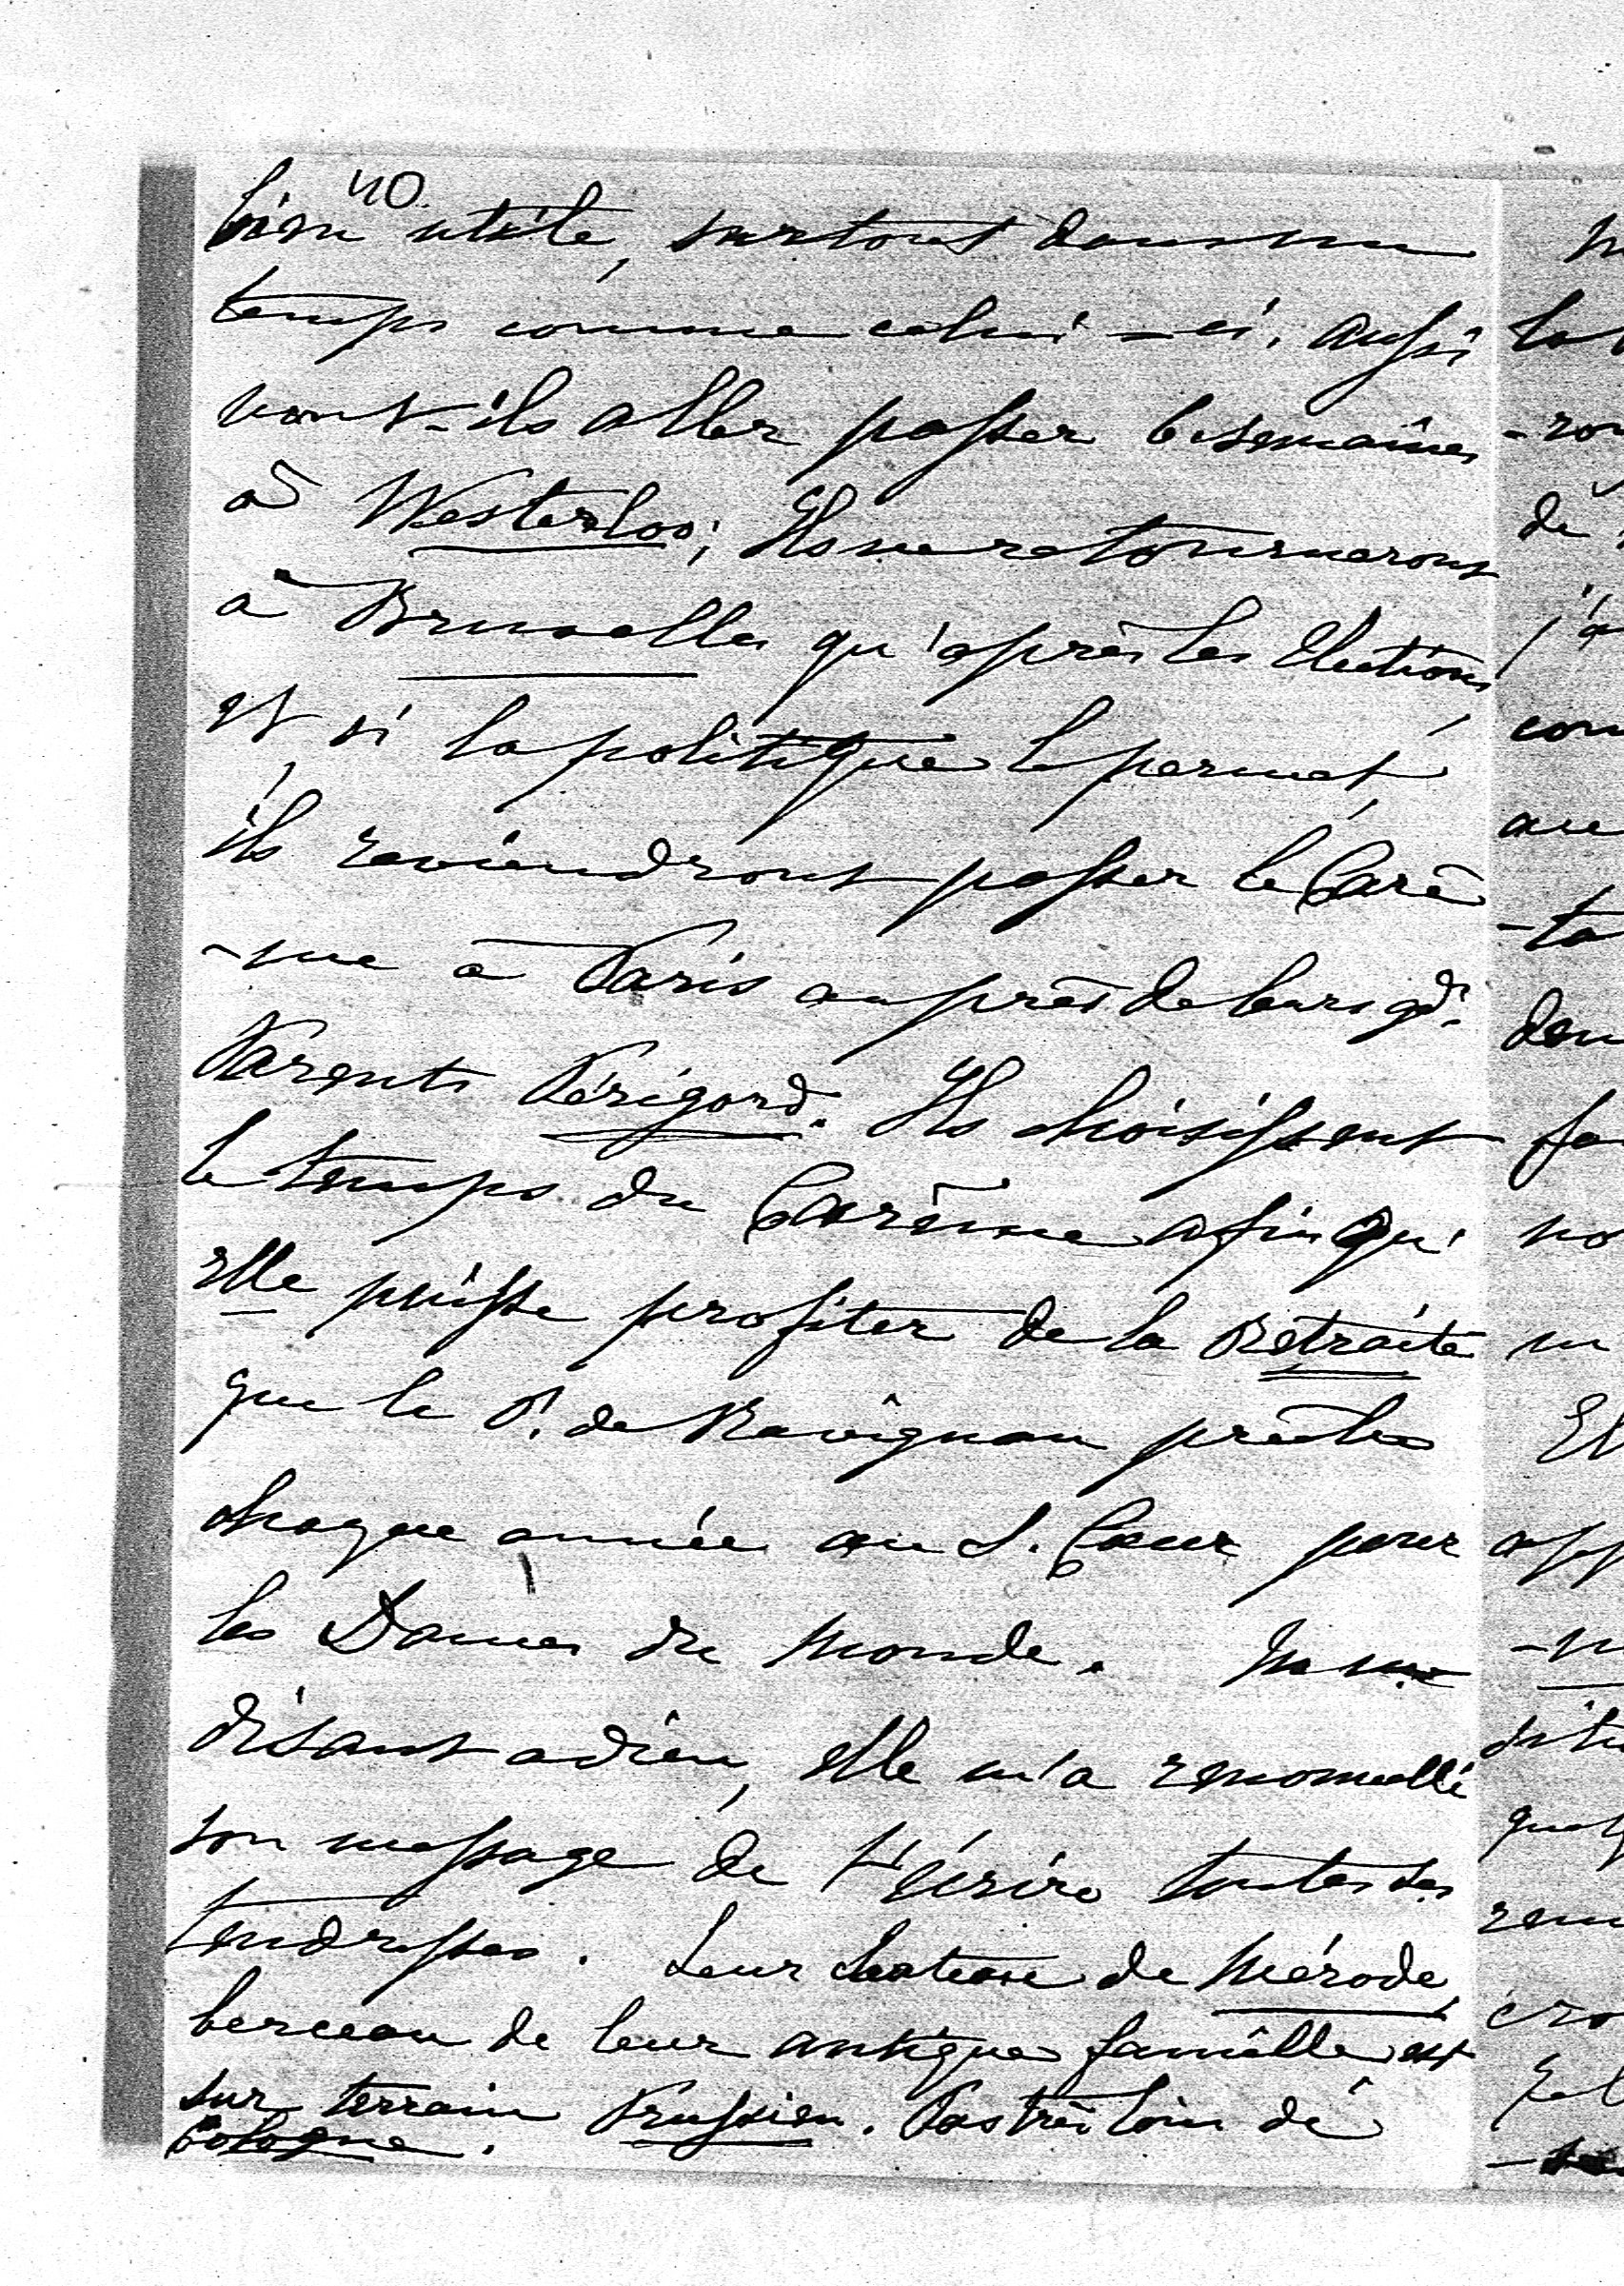 40.
bien utile, surtout dans un
temps comme celui-ci. aussi
vont-ils aller passer 6 semaines
à Westerloo; Ils ne retourneront
à Bruxelles qu'après les Elections
et, si la politique le permet,
ils reviendront passer le Carê
-me à Paris auprès de leurs gds.
Parents Périgord. Ils choisissent
le temps du Carême afin qu'
elle puisse profiter de la Retraite
que le P. de Ravignan prêche
chaque année au S. Coeur pour
les Dames du Monde. En me
disant adieu, elle m'a renouvellé
son message de t'écrire toutes ses
tendresses. Leur chateau de Mérode,
berceau de leur antique famille est
sur terrain Prussien. Pas très loin de
Cologne.